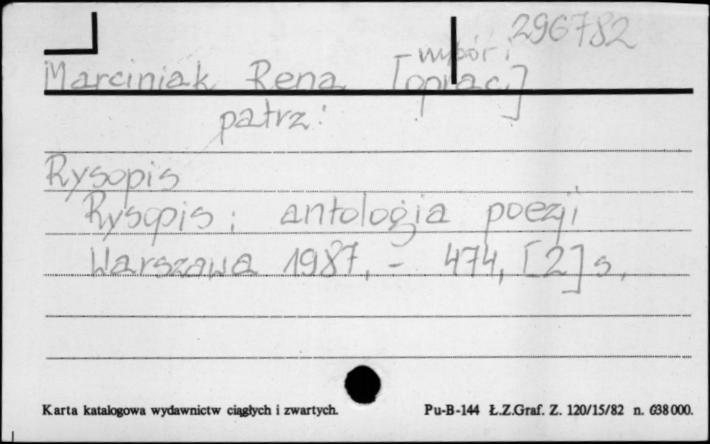 296782
wybór i
Marciniak Rena [oprac]
patrz:
Rysopis
Rysopis: antologia poezji
Warszawa 1987, - 474, [2] s.
Karta katalogowa wydawnictw ciągłych i zwartych. Pu-B-144 Ł.Z.Graf. Z. 120/15/82 n. 638000.